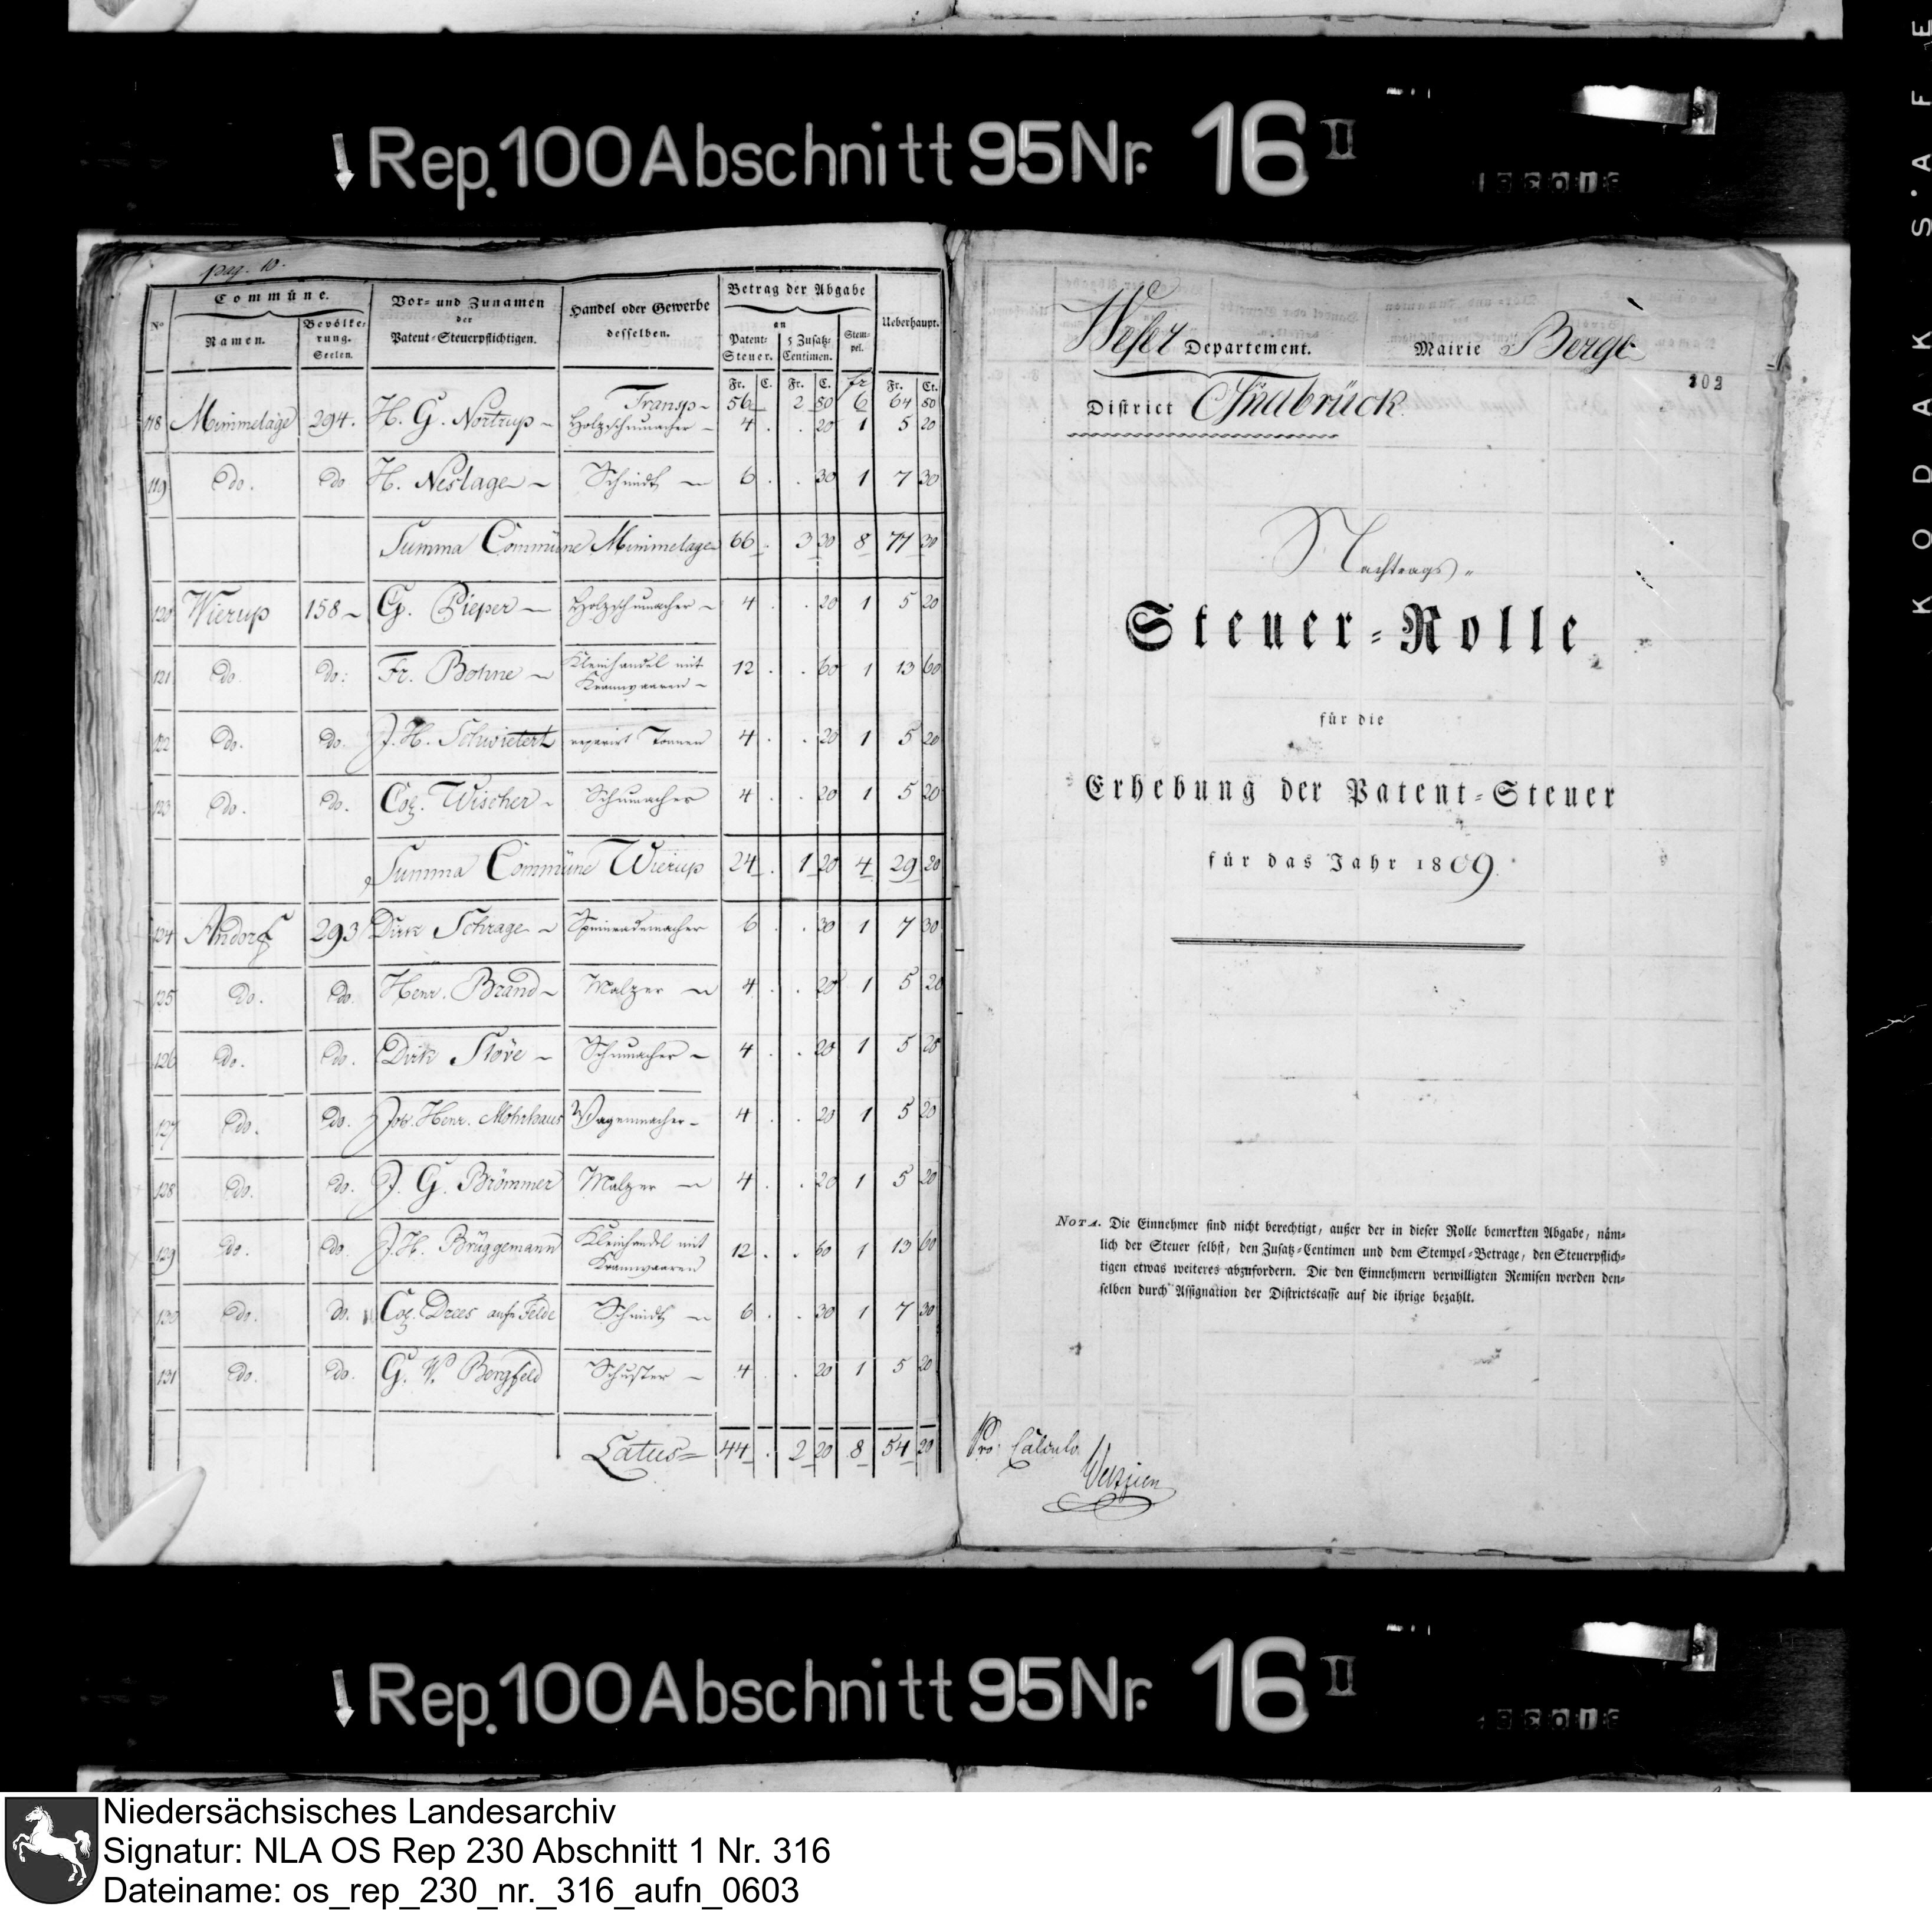 KODAK S'AFE
Rep. 100 Abschnitt 95 Nr. 16 II
pag. 10.
No
Commüne.
Namen.
Bevölke=
rung.
Seelen.
Vor= und Zunamen
der
Patent=Steuerpflichtigen.
Handel oder Gewerbe
desselben.
Betrag der Abgabe
an
Patent=
Steuer.
5 Zusatz=
Centimen.
Stem=
pel.
Ueberhaupt.
Fr. C. Fr. C. fr Fr. Ct.
Transp~ 56 2 80 6 64 80
118 Mimmelage 294. H. G. Nortrup ~ Holzschumacher ~ 4 . . 20 1 5 20
119 do. do H. Neslage ~ Schmidt ~ 6 . . 30 1 7 30
Summa Commüne Mimmelage 66 . 3 30 8 77 30
120 Wierup 158 ~ G. Pieper ~ Holzschumacher ~ 4 . . 20 1 5 20
121 do. do: Fr. Bohne ~ Kleinhandel mit
Kramwaaren ~ 12 . . 60 1 13 60
122 do. do. J. H. Schwietert reparirt Tonnen 4 . . 20 1 5 20
123 do. do. Wischer ~ Schumacher 4 . . 20 1 5 20
Summa Commüne Wierup 24 . 1 20 4 29 20
124 Andorf 293 Dirk Schrage ~ Spinnrademacher 6 . . 30 1 7 30
125 do. do. Henr. Brand ~ Malzer ~ 4 . . 20 1 5 20
126 do. do. Dirk Stöve ~ Schumacher ~ 4 . . 20 1 5 20
127 do. do. Joh. Henr. Mohrhaus Wagenmacher ~ 4 . . 20 1 5 20
128 do. do. J. G. Brömmer Malzer ~ 4 . . 20 1 5 20
129 do. do. J. H. Brüggemann Kleinhandel mit
Kramwaaren 12 . . 60 1 13 60
130 do. do. Drees aufn Felde Schmidt ~ 6 . . 30 1 7 30
131 do. do. G. W. Bergfeld Schuster ~ 4 . . 20 1 5 20
Latus = 44 . 2 20 8 54 20
Weser Departement. Mairie Berge
102
District Osnabrück.
Nachtrags=
Steuer=Rolle
für die
Erhebung der Patent=Steuer
für das Jahr 1809.
NOTA. Die Einnehmer sind nicht berechtigt, außer der in dieser Rolle bemerkten Abgabe, näm=
lich der Steuer selbst, den Zusatz=Centimen und dem Stempel=Betrage, den Steuerpflich=
tigen etwas weiteres abzufordern. Die den Einnehmern verwilligten Remisen werden den=
selben durch Assignation der Districtscasse auf die ihrige bezahlt.
Pro Calculo
Rep. 100 Abschnitt 95 Nr. 16 II
Niedersächsisches Landesarchiv
Signatur: NLA OS Rep 230 Abschnitt 1 Nr. 316
Dateiname: os_rep_230_nr._316_aufn_0603